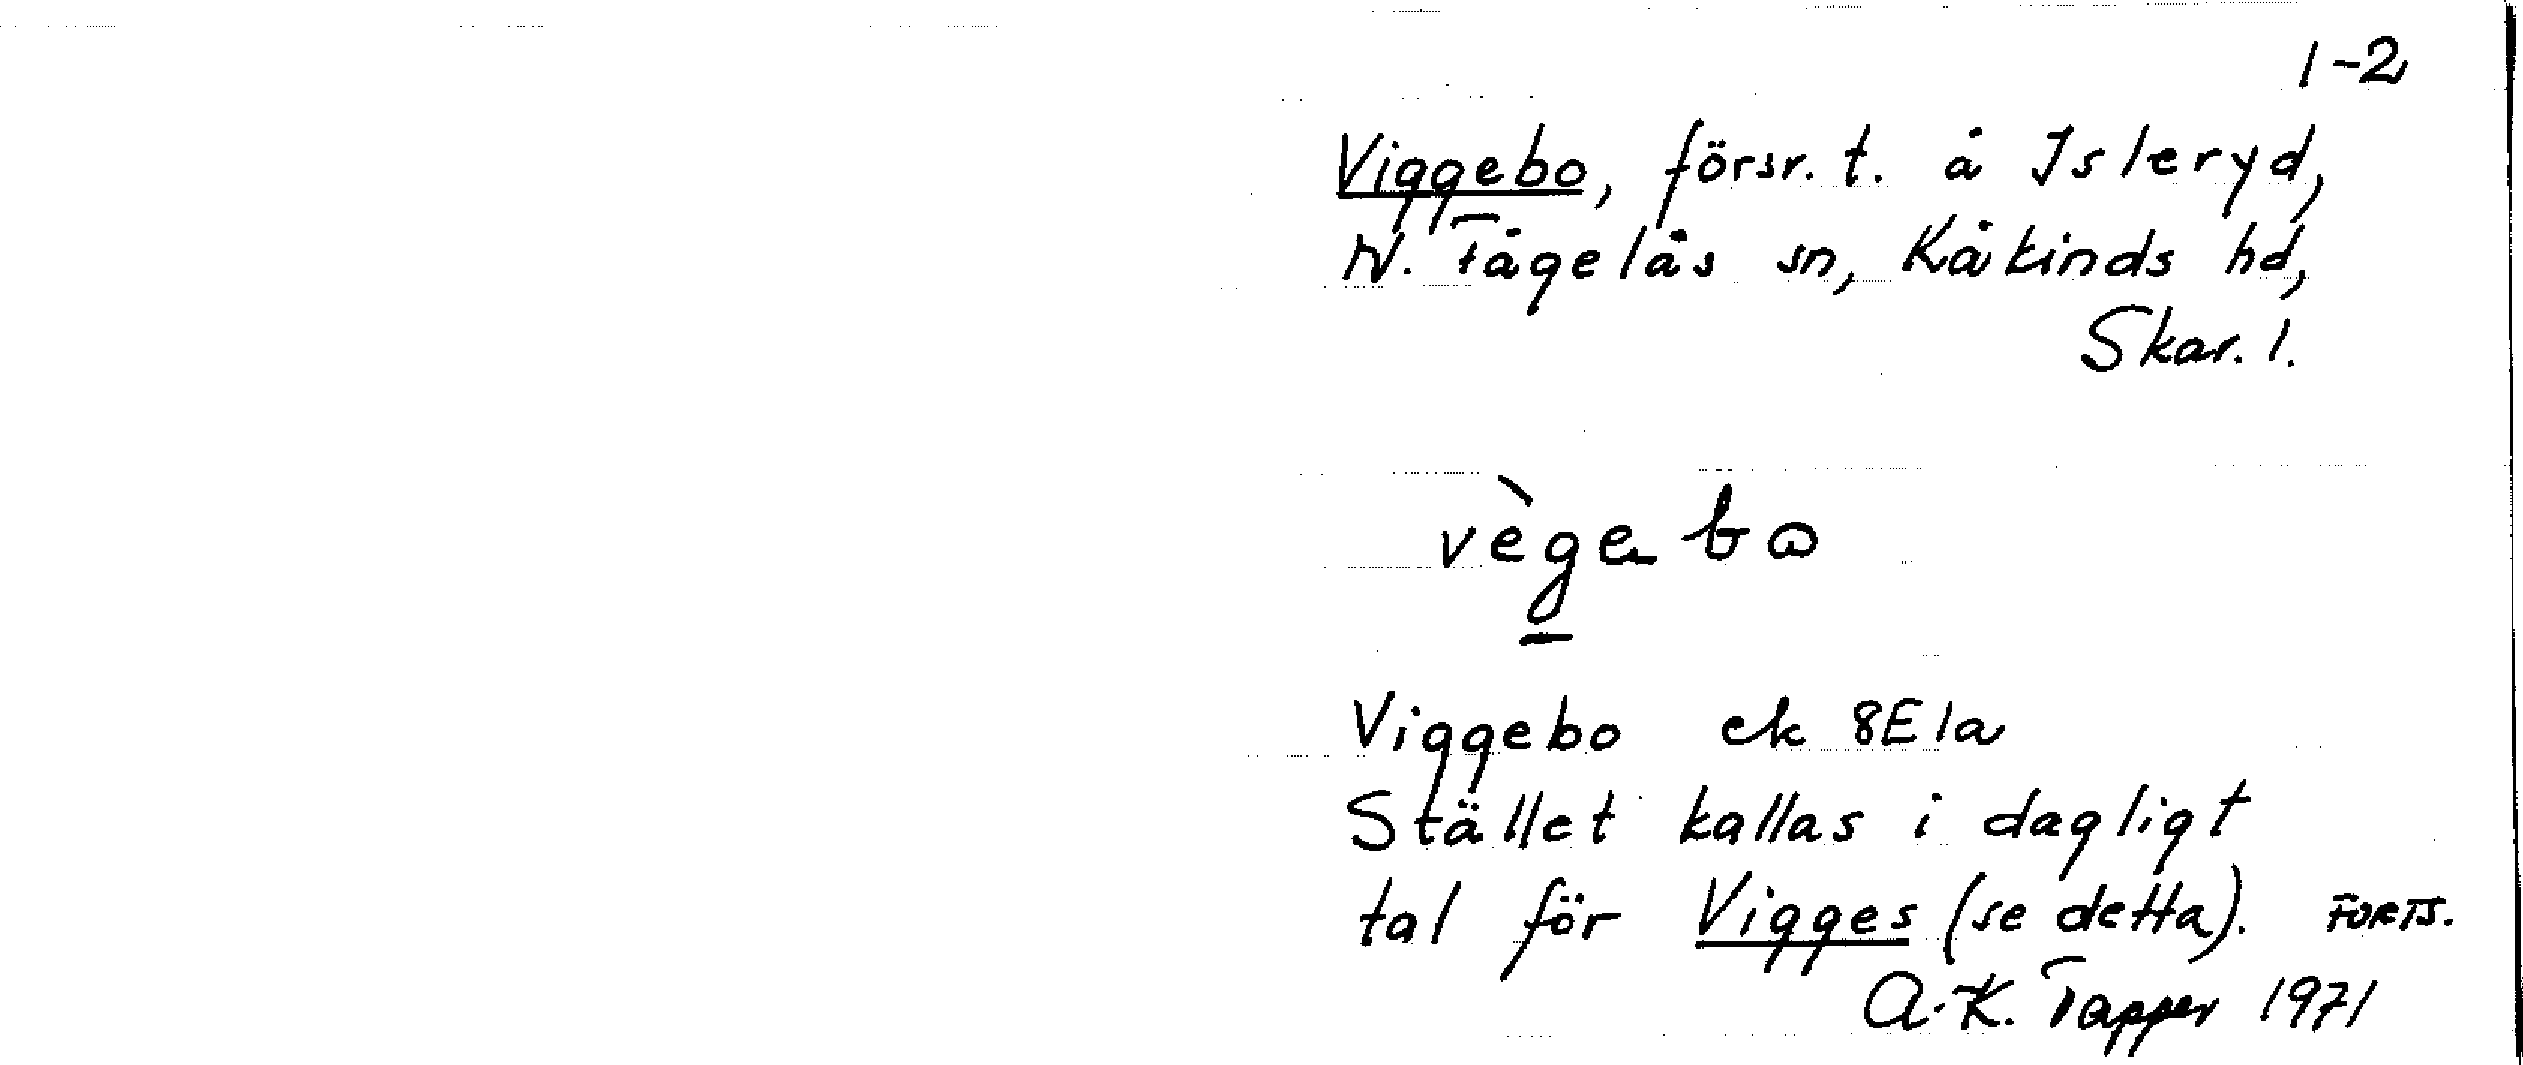 1-2
Viggebo, försr. t. å Isleryd,
N. Fågelås sn, Kåkinds hd,
Skar. l.
vège bo
Viggebo ek 8E1a
Stället kallas i dagligt
tal för Vigges (se detta). FORTS.
A.-K. Tapper 1971